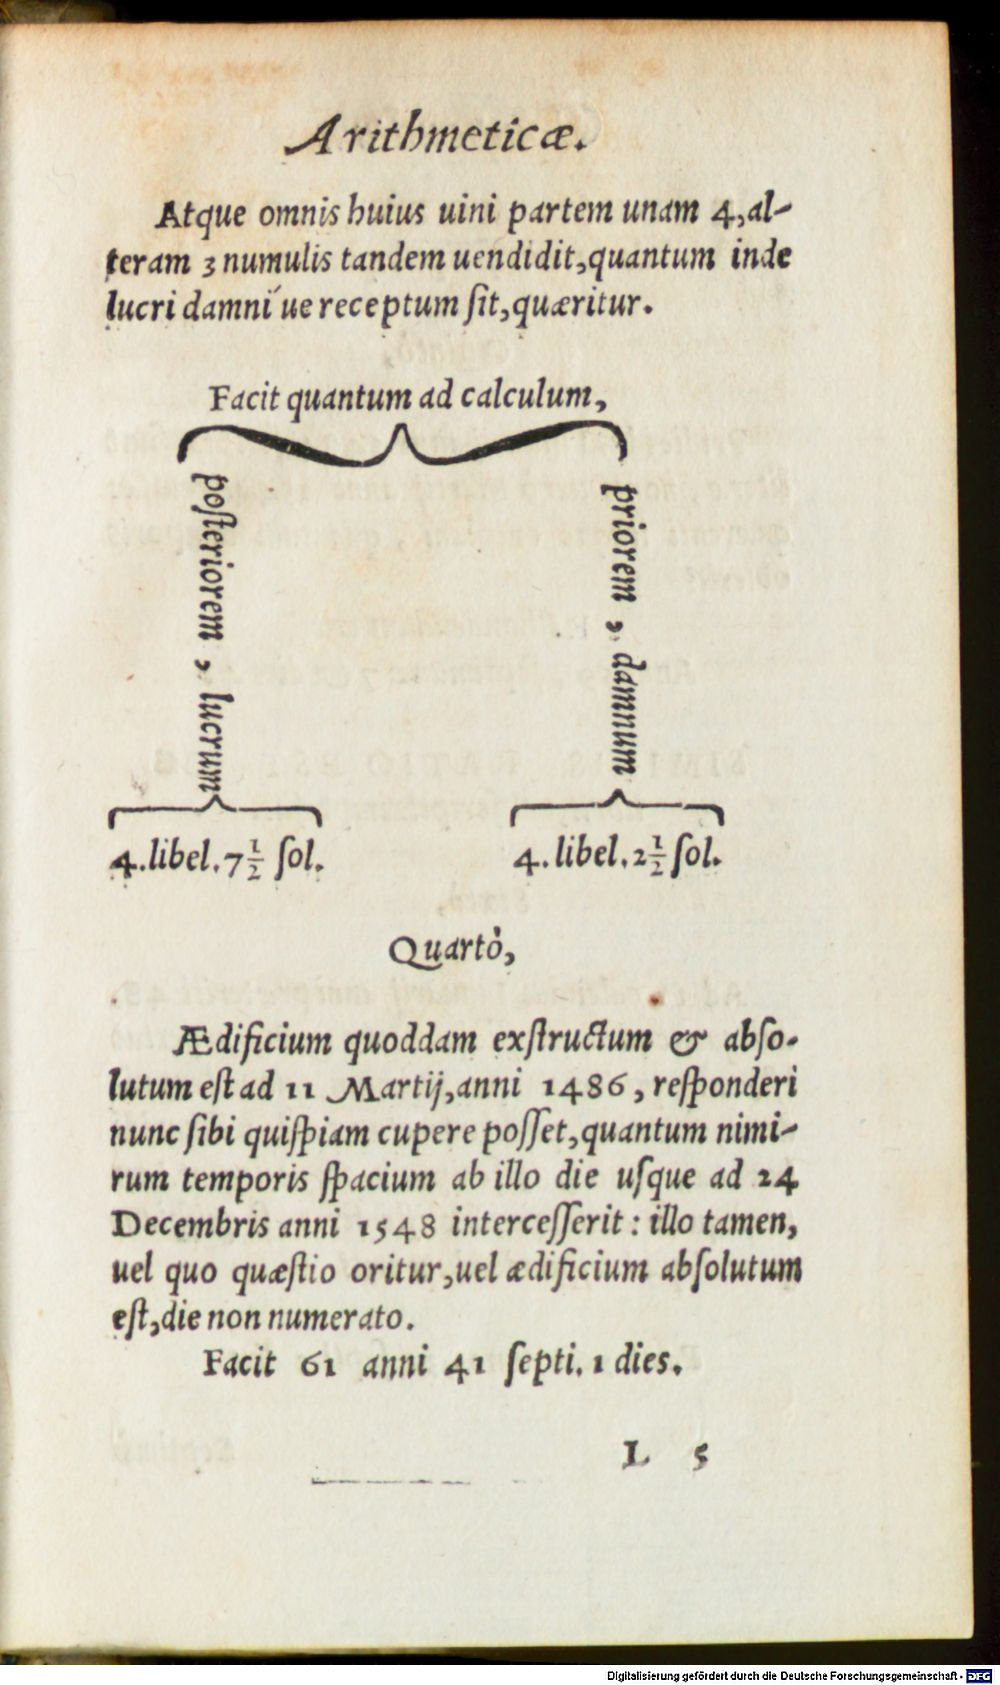 Arithmeticæ.
Atque omnis huius uini partem unam 4, al-
teram 3 numulis tandem uendidit, quantum inde
lucri damni´ue receptum ſit, quæritur.
Facit quantum ad calculum,
poſteriorem, lucrum
4. libel. 7 1/2 ſol.
priorem, damnum
4. libel. 2 1/2 ſol.
Quartò,
Ædificium quoddam exſtructum & abſo-
lutum eſt ad 11 Martij, anni 1486, reſponderi
nunc ſibi quiſpiam cupere poſſet, quantum nimi-
rum temporis ſpacium ab illo die uſque ad 24
Decembris anni 1548 interceſſerit: illo tamen,
uel quo quæſtio oritur, uel ædificium abſolutum
eſt, die non numerato.
Facit 61 anni 41 ſepti. 1 dies.
L 5
Digitalisierung gefördert durch die Deutsche Forschungsgemeinschaft - DFG